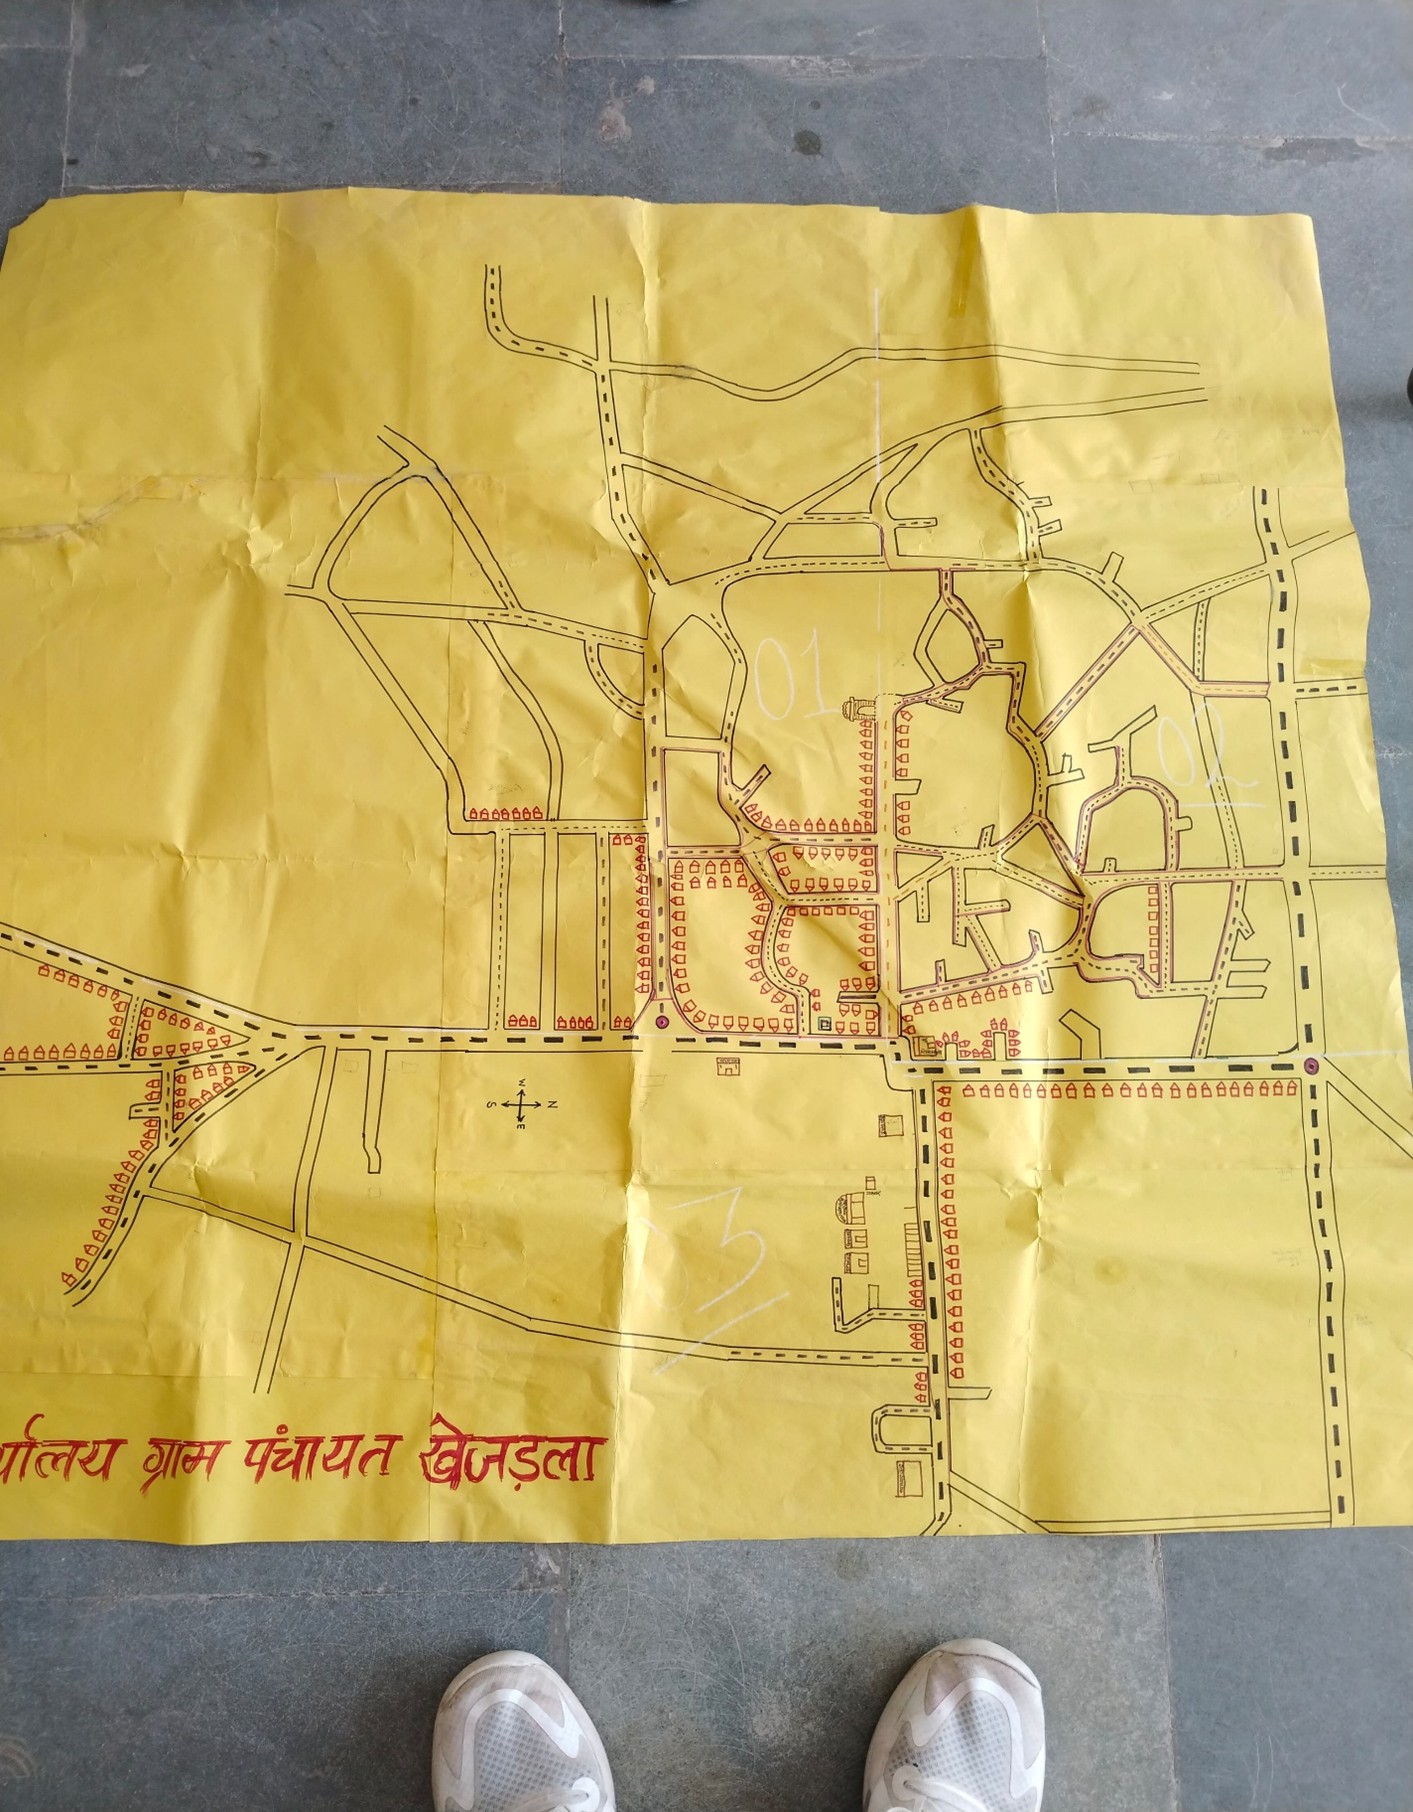 01
02
W
S N
E
03
र्यालय ग्राम पंचायत खेजड़ला